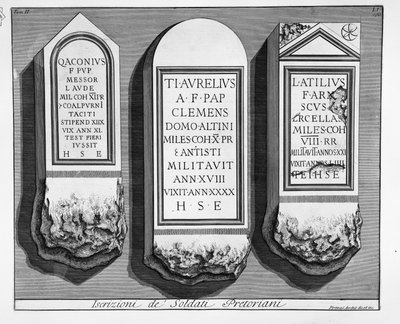 Tom. II
Q·ACONIVS
F PVP
MESSOR
LAVDE
MIL COH XII PR
CALPVRNI
TACITI
STIPEND XIIX
VIX ANN XL
TEST FIERI
IVSSIT
H S E
TI·AVRELIVS
A·F·PAP
CLEMENS
DOMO·ALTINI
MILES·COH·X·PR
ANTISTI
MILITAVIT
ANN·XVIII
VIXIT·ANN·XXXX
H·S·E
L·ATILIVS
F·AR
SCVS
RCELLA
MILES·COH
VIII·RR
MILITAVIT·ANNOS·XXI
VIXIT·ANNOS
TEI·H·S·E
Iscrizioni de' Soldati Pretoriani